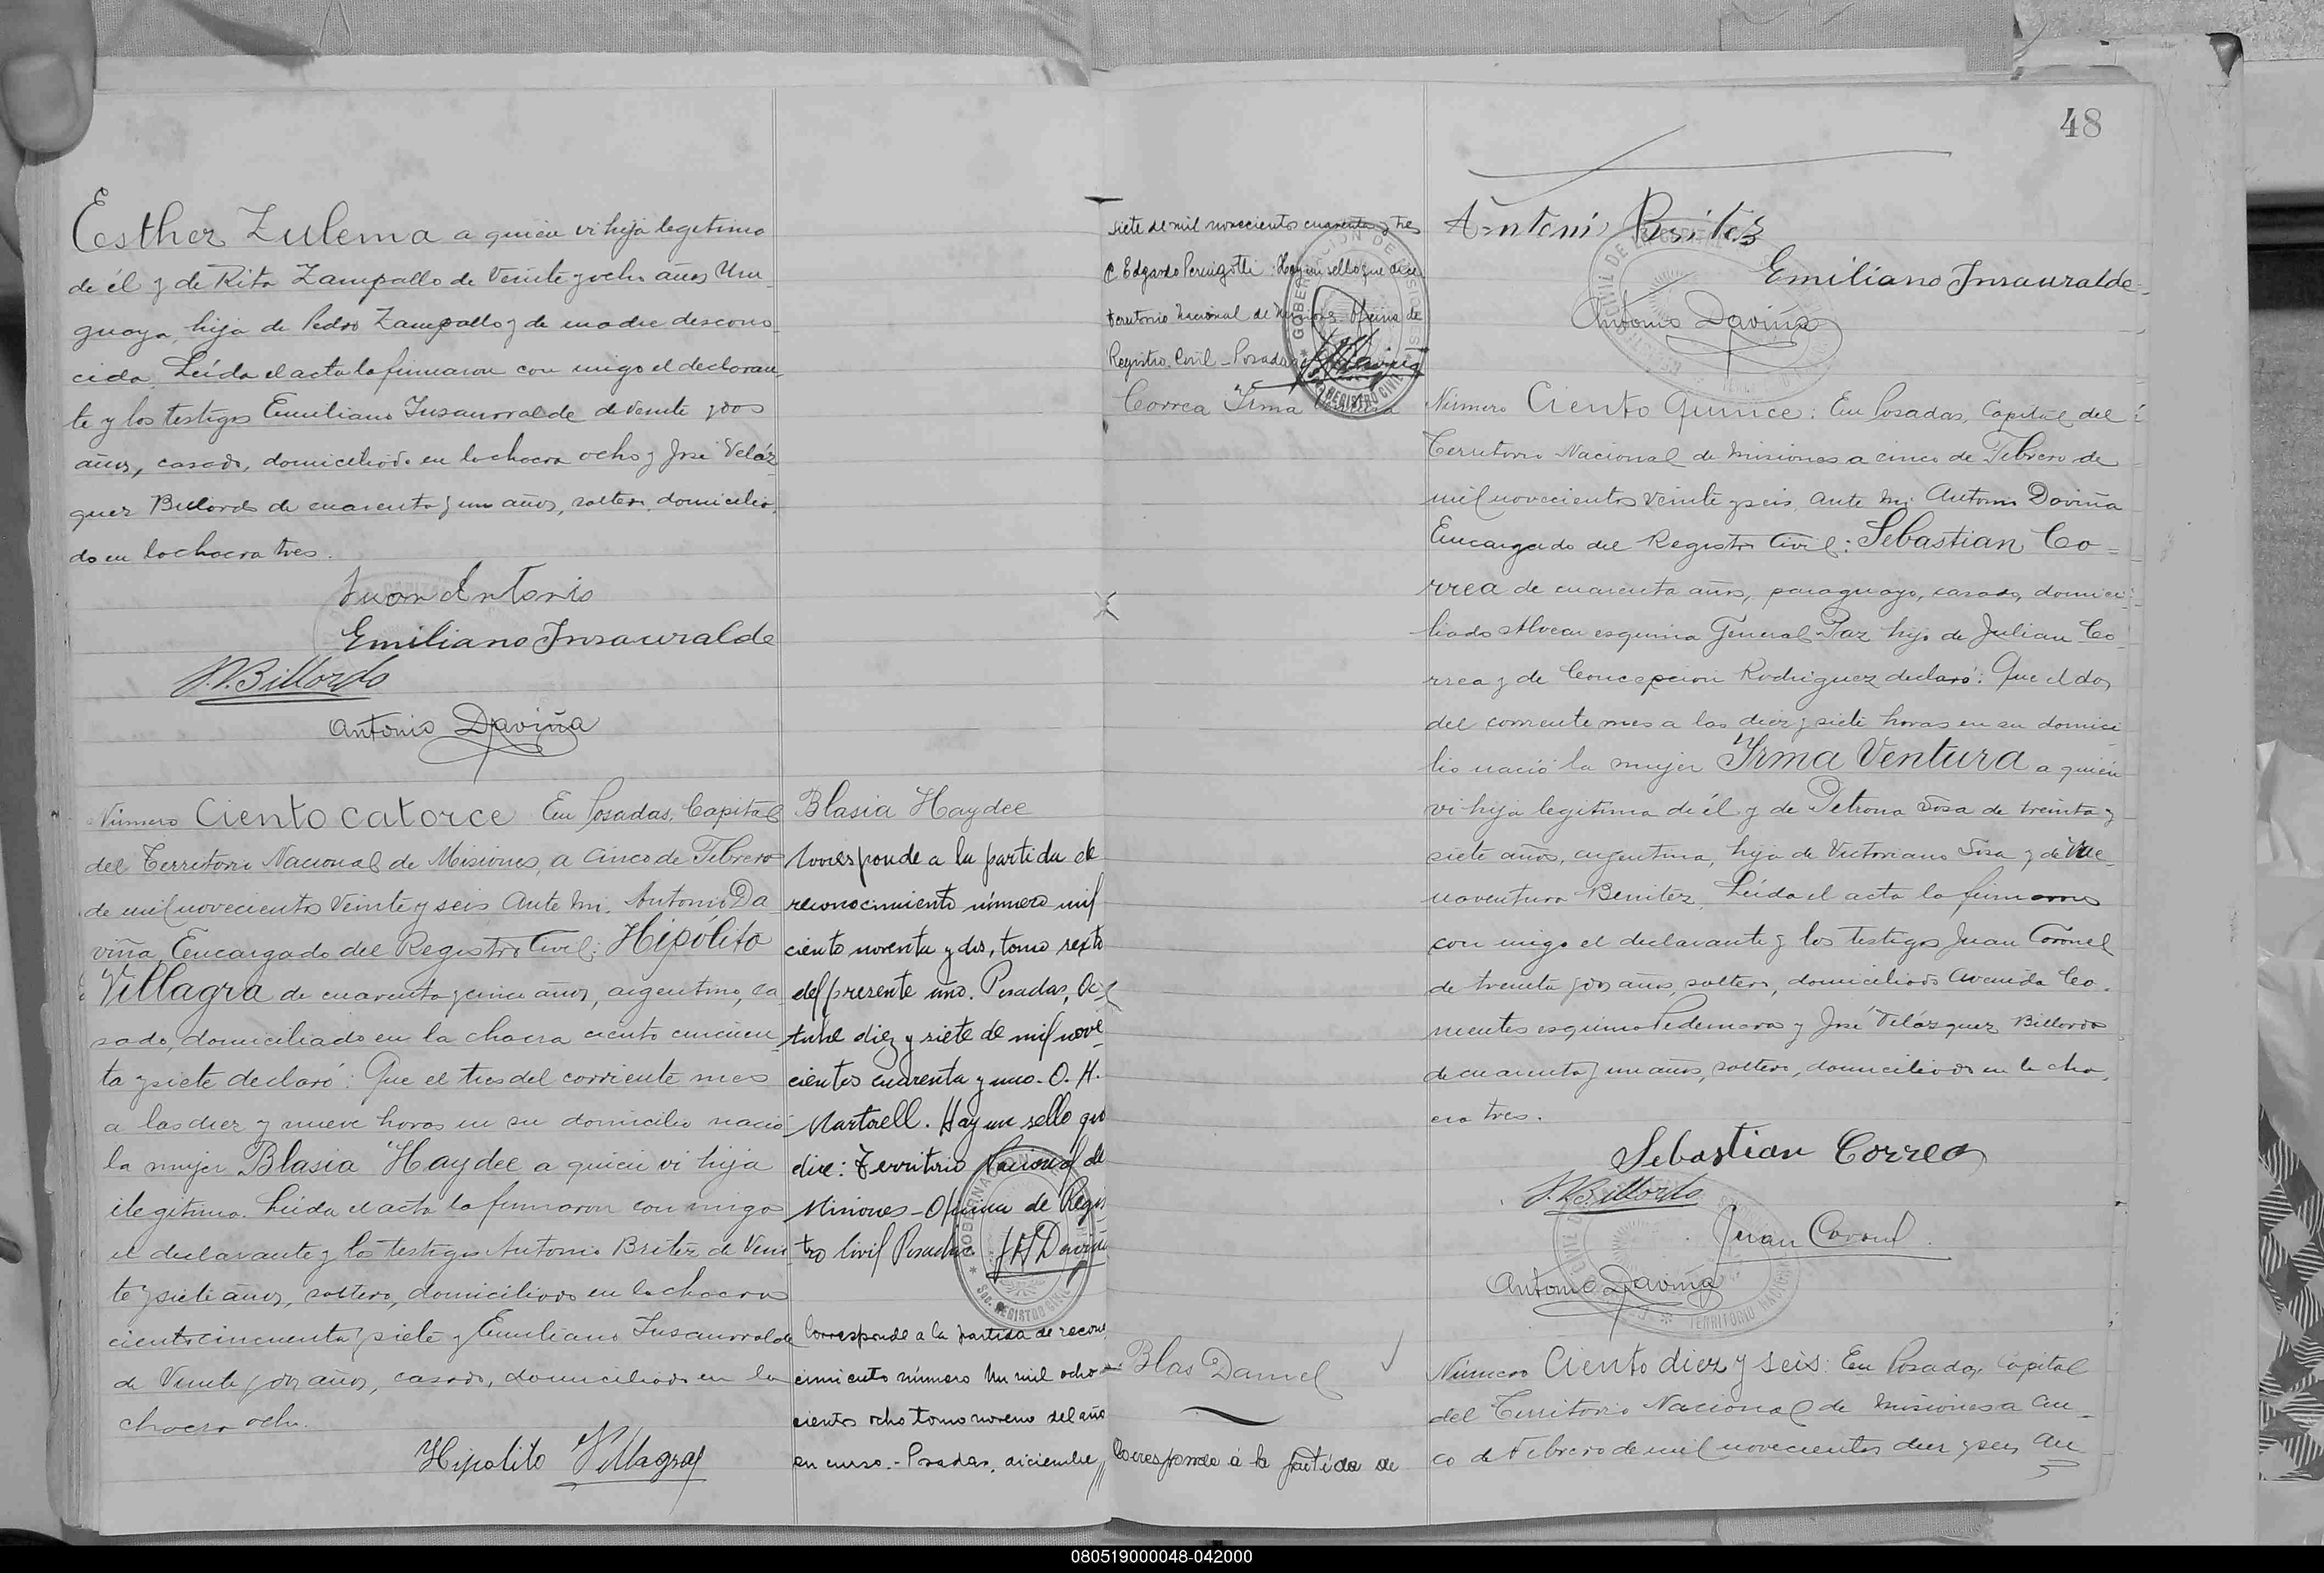 Esther Zulema a quien vi hija legitima
de él y de Rita Zampallo de veinte y ocho años Uru_
guaya, hija de Pedro Zampallo y de madre descono_
cida. Leída el acta la firmaron con migo el declaran_
te y los testigos Emiliano Insaurralde de veinte y dos
años, casado, domiciliado en la chacra ocho y José Veláz
quez Billordo de cuarenta y un años, soltero, domicilia_
do en la chacra tres.
Juan Antonio
Emiliano Insauralde
J.V.Billordo
Antonio Daviña
Número Ciento catorce En Posadas, Capital
del Territorio Nacional de Misiones, a cinco de Febrero
de mil novecientos veinte y seis Ante mi, Antonio Da
viña, Encargado del Registro Civil: Hipólito
Villagra de cuarenta y cinco años, argentino, ca
sado, domiciliado en la chacra ciento cincuen_
ta y siete declaró: Que el tres del corriente mes
a las diez y nueve horas en su domicilio nació
la mujer Blasia Haydee a quien vi hija
ilegitima. Leída el acta la firmaron con migo
el declarante y los testigos Antonio Britez de vein
te y siete años, soltero, domiciliado en la chacra
ciento cincuenta y siete y Emiliano Insaurralde
de veinte y dos años, casado, domiciliado en la
chacra ocho.
Hipolito Villagra
Blasia Haydee
Corresponde a la partida de
reconocimiento número mil
ciento noventa y dos, tomo sexto
del presente año. Posadas, Oc_
tubre diez y siete de mil nove_
cientos cuarenta y uno. O. H.
Martorell. Hay un sello que
dice: Territorio Nacional de
Misiones - Oficina de Regis_
tro Civil Posadas
Corresponde a la partida de recono_
cimiento número Un mil ocho_
cientos ocho tomo noveno del año
en curso.- Posadas, diciembre
siete de mil novecientos cuarenta y tres
Edgardo Hay un sello que dice
Territorio Nacional de Misiones. Oficina de
Registro Civil - Posadas
Correa Irma Ventura
Blas Daniel
Corresponde á la partida de
48
Antoni Britez
Emiliano Insauralde
Antonio Daviña
Número Ciento quince: En Posadas, Capital del
Territorio Nacional de Misiones a cinco de Febrero de
mil novecientos veinte y seis, Ante mi, Antonio Daviña
Encargado del Registro Civil: Sebastian Co_
rrea de cuarenta años, paraguayo, casado, domici_
liado Alvear esquina General Paz hijo de Julian Co_
rrea y de Concepcion Rodriguez declaró: Que el dos
del corriente mes a las diez y siete horas en su domici_
lio nació la mujer Irma Ventura a quien
vi hija legitima de él y de Petrona Sosa de treinta y
siete años, argentina, hija de Victoriano Sosa y de
naventura Benitez. Leída el acta la firmaron
con migo el declarante y los testigos Juan Coronel
de treinta y dos años, soltero, domiciliado Avenida Co_
rrientes esquina Pedernera y José Velázquez Billordo
de cuarenta y un años, soltero, domiciliado en la cha_
cra tres.
Sebastian Correa
J.V.Billordo
Juan Coronel
Antonio Daviña
Número Ciento diez y seis: En Posadas, Capital
del Territorio Nacional de Misiones a cin_
co de Febrero de mil novecientos diez y seis, An
080519000048-042000